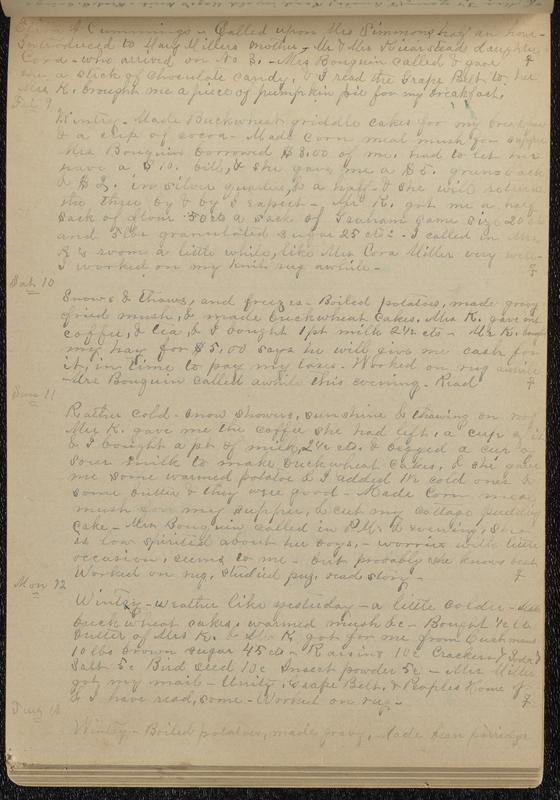 Cummings - Called upon Mrs Simmons half an hour
Introduced to Mary Millers Mother, Mr & Mrs Kierstead daughter
Cora - who arrived on No 3. - Mrs Bouquin called & gave
me a stick of chocolate candy, & I read the Grape Belt to her
Mrs K. brought me a piece of pumpkin pie for my breakfast.
9
Wintry. Made Buckwheat griddle cakes for my breakfast
& a cup of cocoa - Made Corn meal mush for supper
Mrs Bouquin borrowed $3.00 of me, had to let her
have a $10. bill, & she gave me a $5. greenback
& $2. in silver quarters, & a half - & she will return
the three by & by I expect - Mr K. got me a half
sack of flour 50cts a sack of Graham same size 20 cts
and 5 lbs granulated sugar 25 cts. - I called in Mrs
K's room a little while, like Mrs Cora Miller very well -
I worked on my knit rug awhile -
Sat 10
Snows & thaws, and freezes - Boiled potatoes, made gravy
fried mush, & made buckwheat cakes. Mrs K. gave me
coffee, & tea, & I bought 1pt milk 2½ cts - Mr K. bought
my hay for $5.00 says he will give me cash for
it, in time to pay my taxes. Worked on rug awhile
- Mrs Bouquin called awhile this evening. Read
Sun 11
Rather cold - snow showers, sunshine & thawing on roof
Mrs K. gave me the coffee she had left, a cup of it
& I bought a pt of milk, 2½ cts. & begged a cup of
sour milk to make buckwheat cakes, & she gave
me some warmed potatoe & I added 1½ cold ones &
some butter & they were good - Made Corn meal
mush for my supper, & cut my cottage pudding
cake - Mrs Bouquin called in P.M. & evening, She
is low spirited about her boys, - worries with little
occasion, seems to me - but probably she knows best
Worked on rug, studied pug. read story -
Mon 12
Wintry - weather like yesterday - a little colder -
buckwheat cakes, warmed mush &c - Bought
butter of Mrs K. & Mr K got for me from Cushmans
10 lbs brown sugar 45 cts - Raisins 10c Crackers 7 Soda 7
Salt 5c Bird Seed 10c Insect powder 5c - Mrs Miller
got my mail - Unity, Grape Belt, & Peoples Home
& I have read, some - Worked on rug -
Wintry - Boiled potatoes, made gravy, Made bean porridge